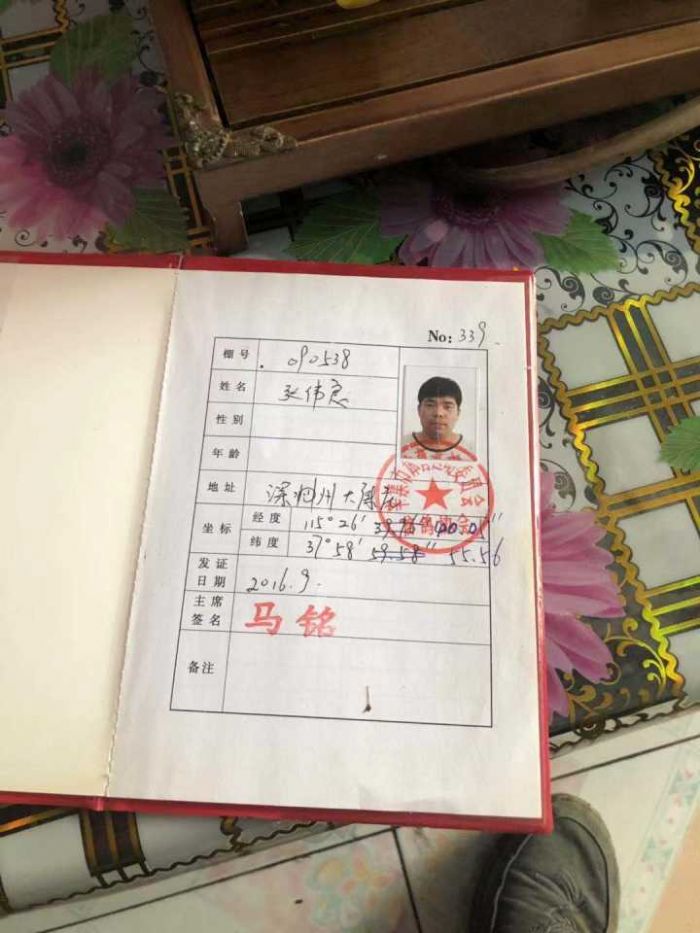 No: 339.
棚号 . 090538
姓名 张伟良
性别
年龄
地址 深州 大
坐标 经度 115°26′ 39.96″ 00.05″
纬度 37°58′ 59.58″ 55.56
发证日期 2016.9.
主席签名 马铭
备注